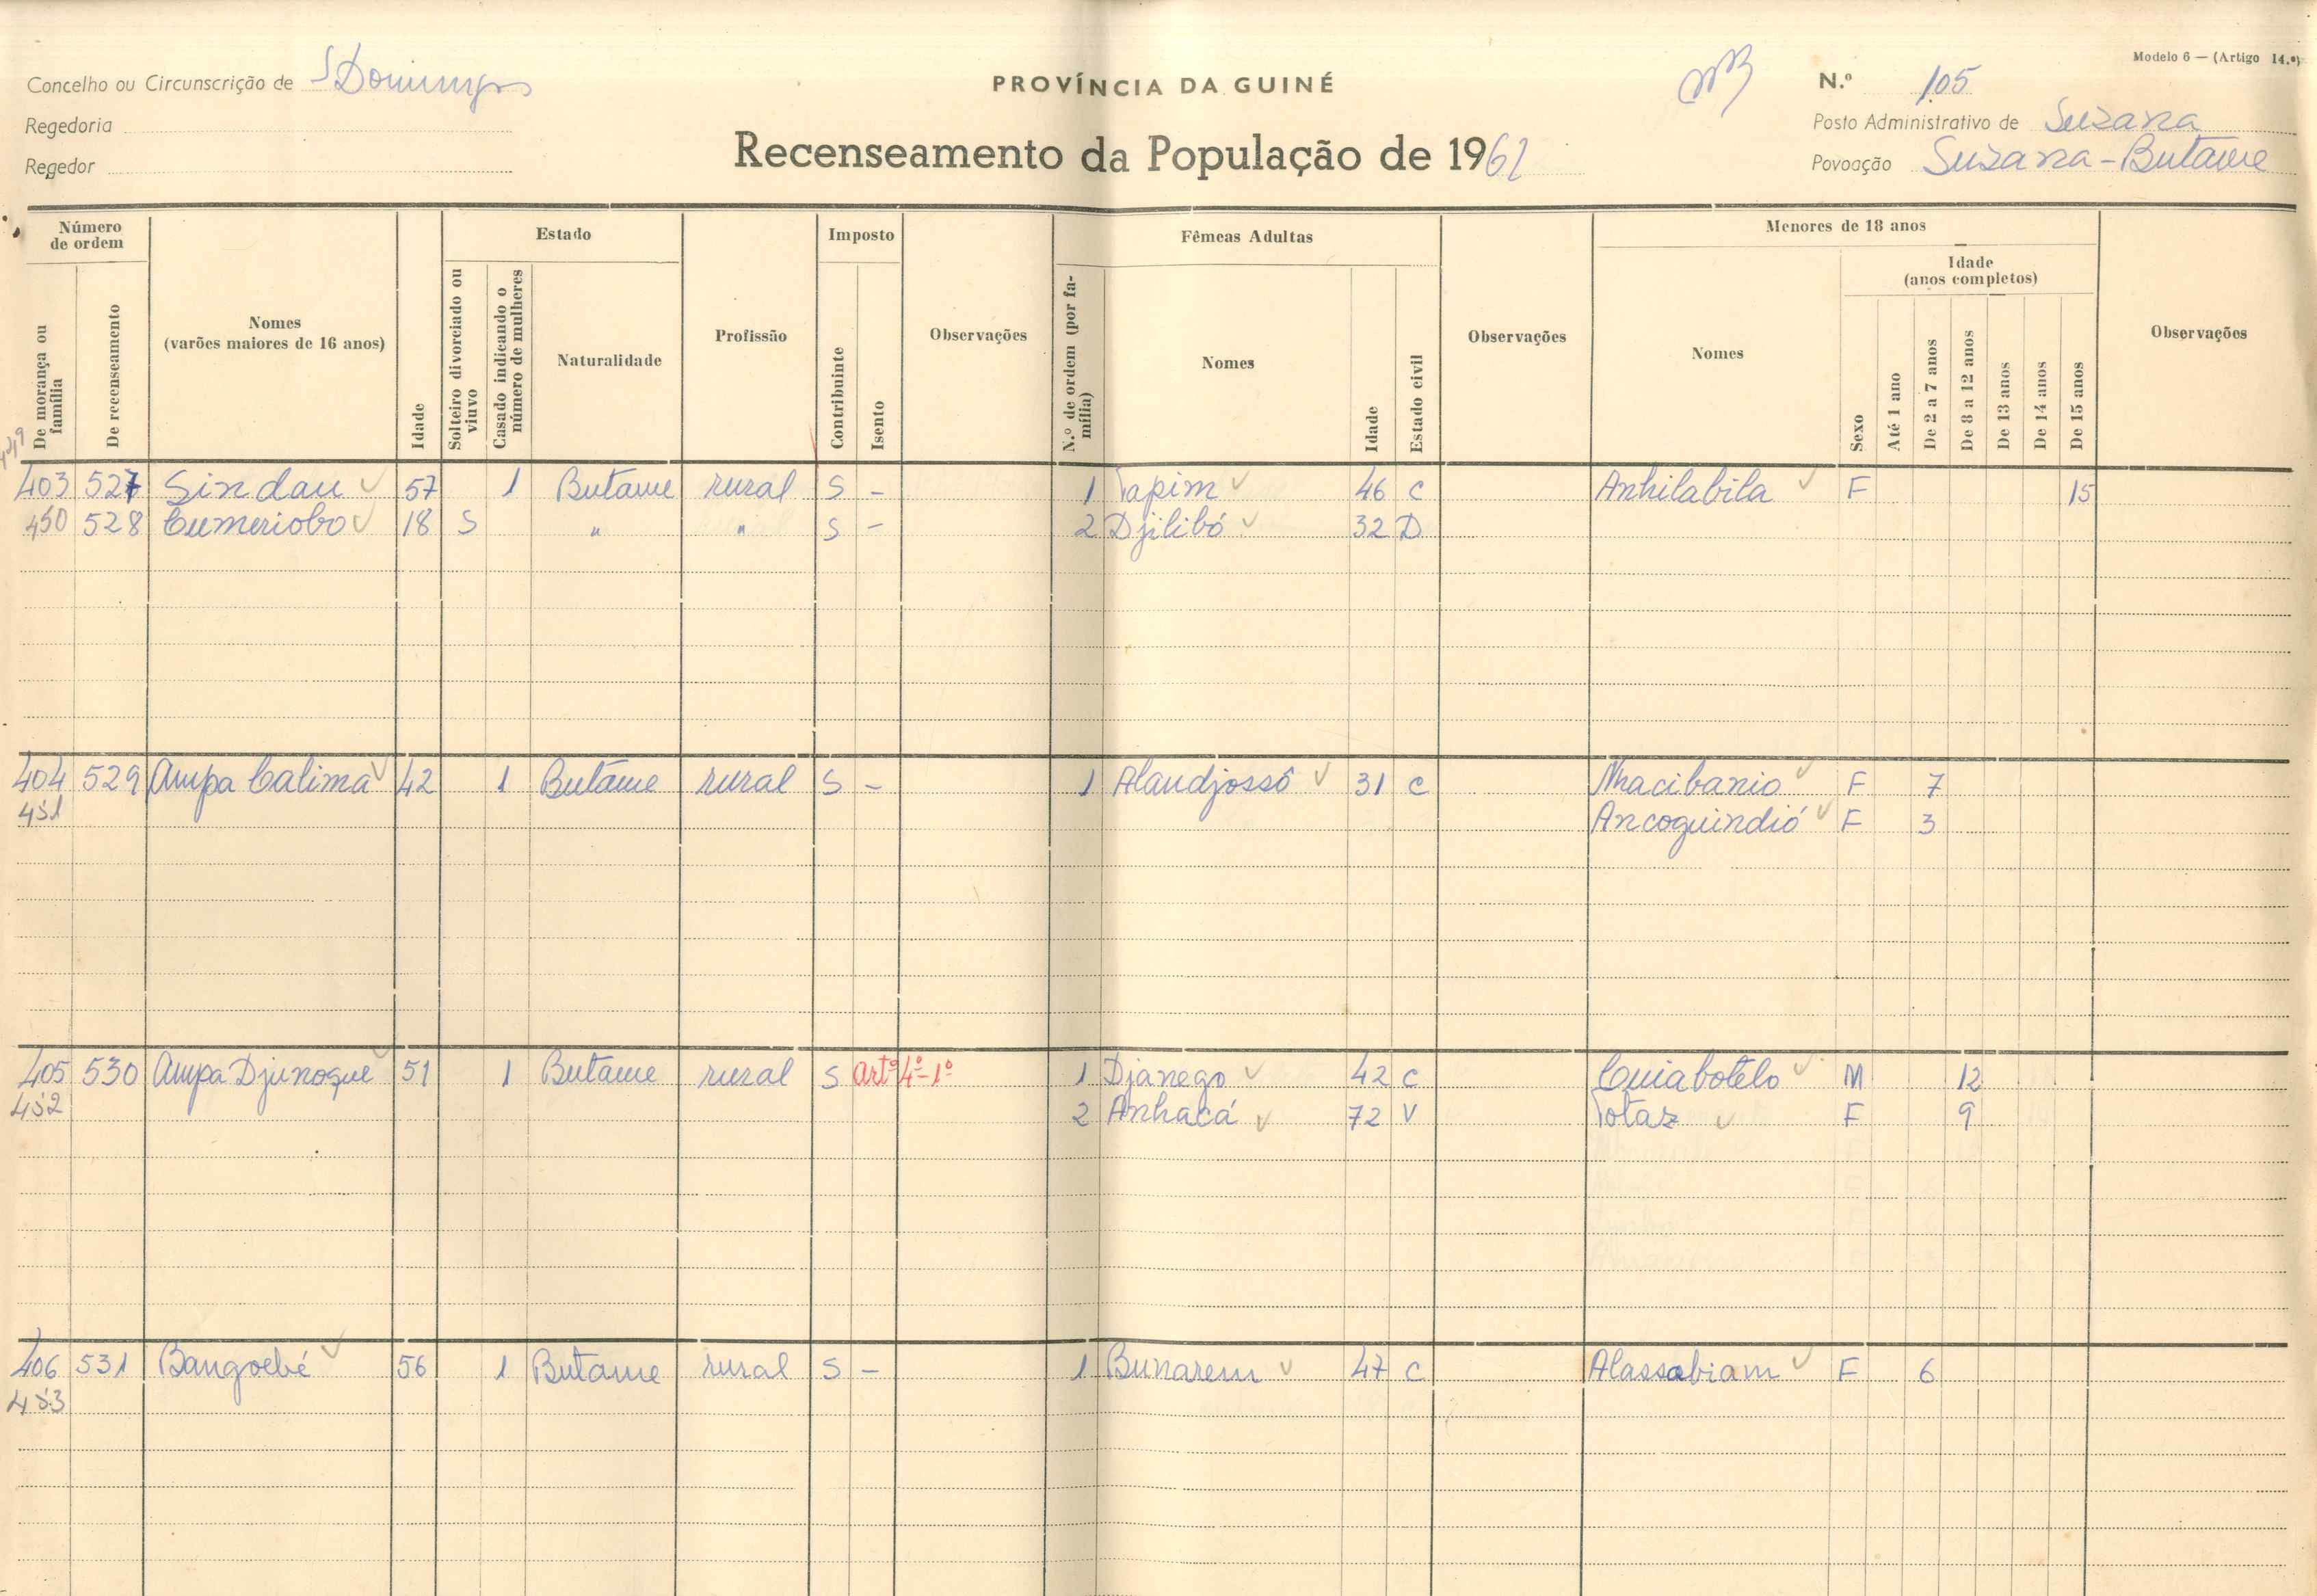 Modelo 6 — (Artigo 14.º)
Concelho ou Circunscrição de S Domingos
PROVÍNCIA DA GUINÉ
N.º 105
Regedoria
Posto Administrativo de Suzana
Recenseamento da População de 1962
Regedor
Povoação Suzana - Butame
Número de ordem
De morança ou família
De recenseamento
Nomes
(varões maiores de 16 anos)
Idade
Estado
Solteiro divorciado ou viuvo
Casado indicando o número de mulheres
Naturalidade
Profissão
Imposto
Contribuinte
Isento
Observações
Fêmeas Adultas
N.º de ordem (por família)
Nomes
Idade
Estado civil
Observações
Menores de 18 anos
Nomes
Sexo
Idade
(anos completos)
Até 1 ano
De 2 a 7 anos
De 8 a 12 anos
De 13 anos
De 14 anos
De 15 anos
Observações
403 527 Sindau 57 1 Butame rural S - 1 Tapim 46 C Anhilabila F 15
450 528 Cumeriobo 18 S " " S - 2 Djilibó 32 D
404 529 Ampa Calima 42 1 Butame rural S - 1 Alandjossó 31 C Nhacibanio F 7
451 Ancoguindió F 3
405 530 Ampa Djunoque 51 1 Butame rural S artº 4º-1º 1 Djanego 42 C Cuiabotelo M 12
452 2 Anhacá 72 V Totaz F 9
406 531 Bangoebé 56 1 Butame rural S - 1 Bunarem 47 C Alassabiam F 6
453